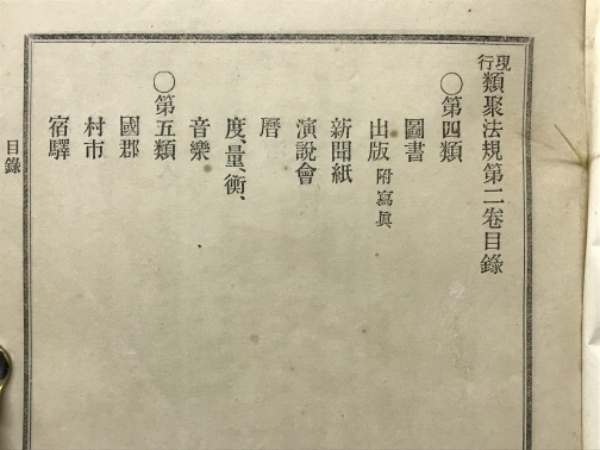 現行類聚法規第二卷目錄
○第四類
圖書
出版 附寫眞
新聞紙
演說會
曆
度、量、衡、
音樂
○第五類
國郡
村市
宿驛
目錄